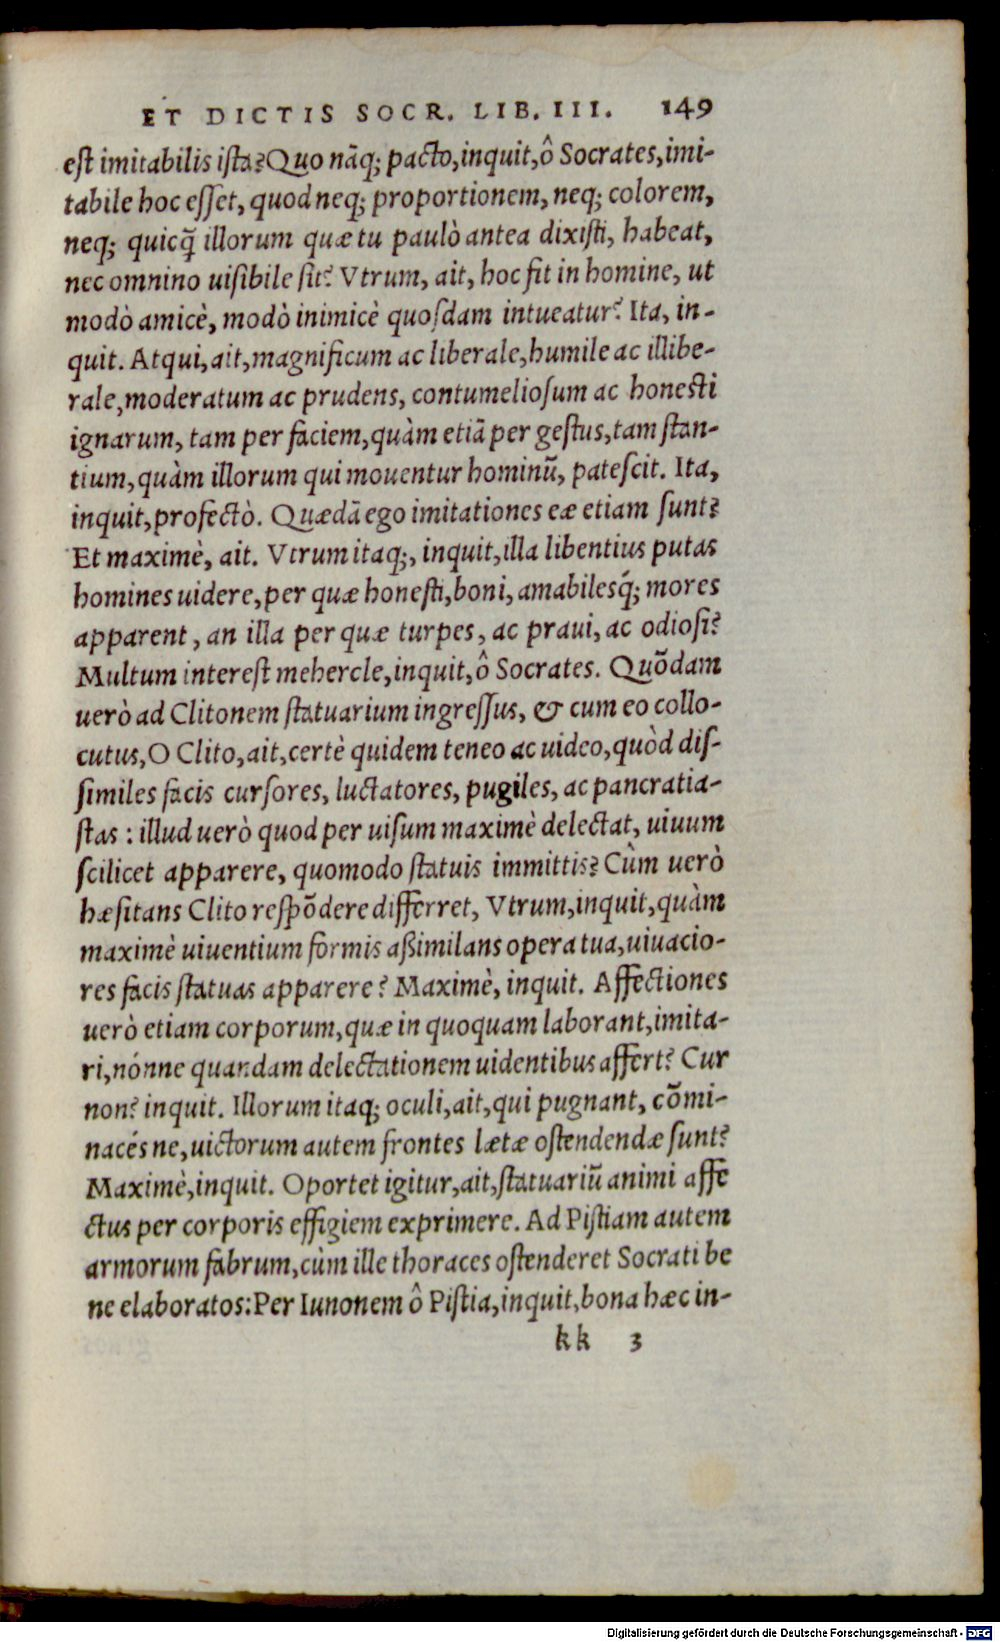 ET DICTIS SOCR. LIB. III. 149
est imitabilis ista? Quo nāq; pacto, inquit, ô Socrates, imi-
tabile hoc esset, quod neq; proportionem, neq; colorem,
neq; quicq̃ illorum quæ tu paulò antea dixisti, habeat,
nec omnino uisibile sit? Vtrum, ait, hoc fit in homine, ut
modò amicè, modò inimicè quosdam intueatur? Ita, in-
quit. Atqui, ait, magnificum ac liberale, humile ac illibe-
rale, moderatum ac prudens, contumeliosum ac honesti
ignarum, tam per faciem, quàm etiā per gestus, tam stan-
tium, quàm illorum qui mouentur hominū, patescit. Ita,
inquit, profectò. Quædā ego imitationes eæ etiam sunt?
Et maximè, ait. Vtrum itaq;, inquit, illa libentius putas
homines uidere, per quæ honesti, boni, amabilesq́; mores
apparent, an illa per quæ turpes, ac praui, ac odiosi?
Multum interest mehercle, inquit, ô Socrates. Quōdam
uerò ad Clitonem statuarium ingressus, & cum eo collo-
cutus, O Clito, ait, certè quidem teneo ac uideo, quòd dis-
similes facis cursores, luctatores, pugiles, ac pancratia-
stas: illud uerò quod per uisum maximè delectat, uiuum
scilicet apparere, quomodo statuis immittis? Cùm uerò
hæsitans Clito respōdere differret, Vtrum, inquit, quàm
maximè uiuentium formis aßimilans opera tua, uiuacio-
res facis statuas apparere? Maximè, inquit. Affectiones
uerò etiam corporum, quæ in quoquam laborant, imita-
ri, nónne quandam delectationem uidentibus affert? Cur
non? inquit. Illorum itaq; oculi, ait, qui pugnant, cōmi-
nacésne, uictorum autem frontes lætæ ostendendæ sunt?
Maximè, inquit. Oportet igitur, ait, statuariū animi affe
ctus per corporis effigiem exprimere. Ad Pistiam autem
armorum fabrum, cùm ille thoraces ostenderet Socrati be
ne elaboratos: Per Iunonem ô Pistia, inquit, bona hæc in-
kk 3
Digitalisierung gefördert durch die Deutsche Forschungsgemeinschaft - DFG